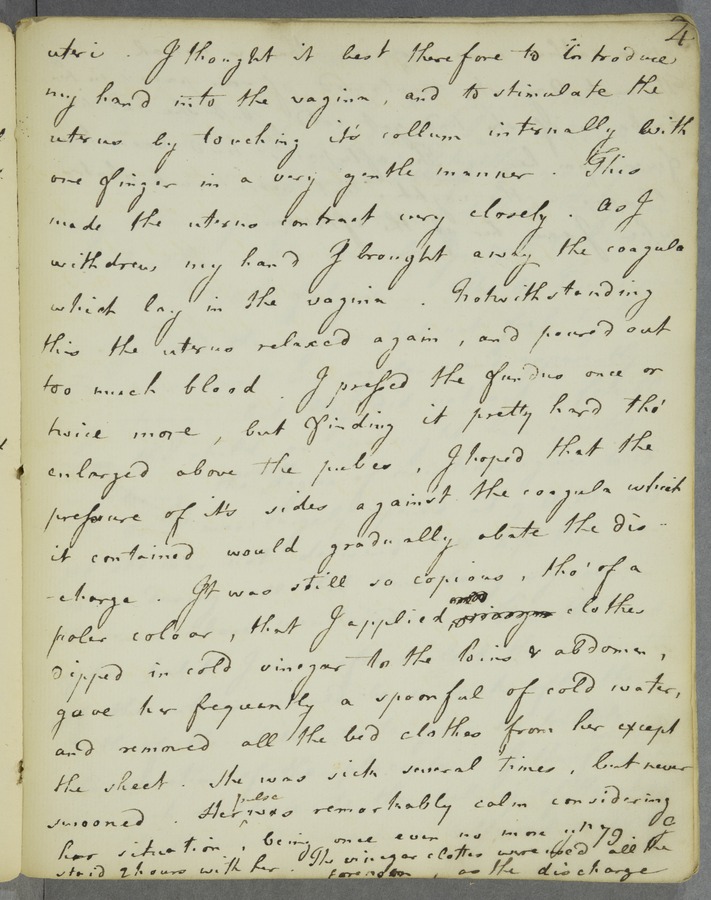 2
uteri . I thought it best therefore to introduce
my hand into the vagina , and to stimulate the
uterus by touching its collum internally with
one finger in a very gentle manner . This
made the uterus contract very closely . As I
withdrew my hand I brought away the coagula
which lay in the vagina . Notwithstanding
this the uterus relaxed again , and poured out
too much blood . I pressed the fundus once or
twice more , but finding it pretty hard tho'
enlarged above the pubes , I hoped that the
pressure of its sides against the coagula which
it contained would gradually abate the dis-
-charge . It was still so copious , tho' of a
paler colour , that I applied clothes
dipped in cold vinegar to the loins & abdomen ,
gave her frequently a spoonful of cold water,
and removed all the bed clothes from her except
the sheet . She was sick several times , but never
swooned . Her pulse was remarkably calm considering
her situation , being once even no more than 79 . I
staid 2 hours with her . The vinegar clothes were used all the
forenoon , as the discharge